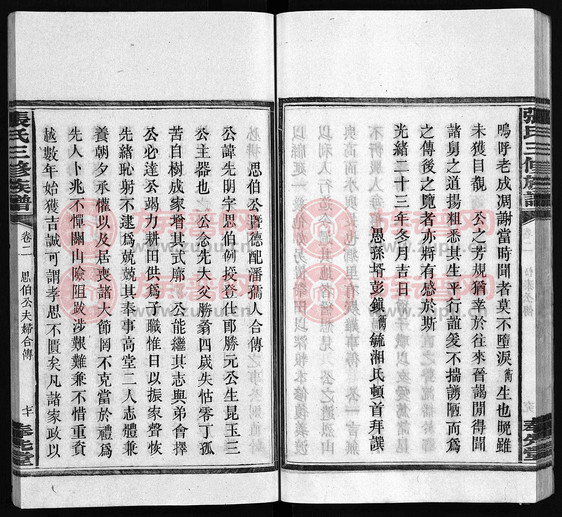 張氏三修族譜
嗚呼老成凋謝當時聞者莫不墮淚衡生也晚雖
未獲目覩　公之芳規猶幸於往來晉謁閒得聞
諸舅之道揚粗悉其生平行誼爰不揣謭陋而爲
之傳後之覽者亦將有感於斯
光緒二十三年冬月吉日
愚孫壻彭鎮衡毓湘氏頓首拜譔
奉先堂
思伯公曁德配潘孺人合傳
公諱先明字思伯例授登仕郎勝元公生昆玉三
公主器也　公念先大父勝翁四歲失怙零丁孤
苦自樹成家增其式廓　公能繼其志與弟會擇
公必達公竭力耕田供爲子職惟日以振家聲恢
先緒恥躬不逮爲兢兢其奉事高堂二人志體兼
養朝夕承懽以及居喪大節罔不克當於禮爲
先人卜兆不憚關山險阻跋涉艱難兼不惜重資
越數年始獲吉誠可謂孝思不匱矣凡諸家政以
張氏三修族譜
卷二
思伯公夫婦合傳
奉先堂